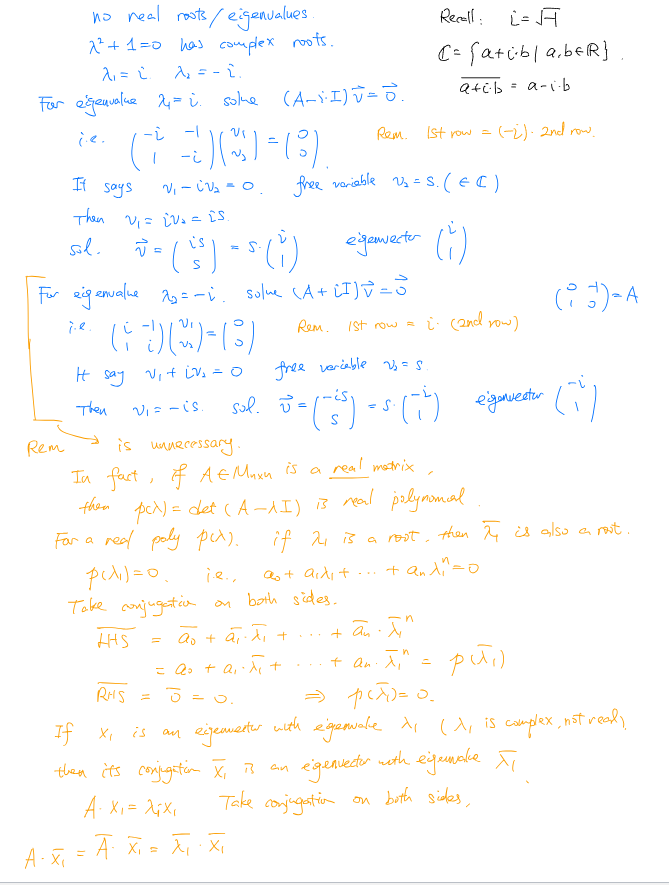 no real roots/eigenvalues.
Recall: i = √-1
λ² + 1 = 0 has complex roots.
ℂ = {a+i·b | a,b ∈ ℝ}.
λ₁ = i. λ₂ = -i.
\overline{a+i·b} = a-i·b
For eigenvalue λ₁ = i. solve (A-i·I)\vec{v} = \vec{0}.
i.e. \begin{pmatrix} -i & -1 \\ 1 & -i \end{pmatrix} \begin{pmatrix} v₁ \\ v₂ \end{pmatrix} = \begin{pmatrix} 0 \\ 0 \end{pmatrix}. Rem. 1st row = (-i)· 2nd row.
It says v₁ - iv₂ = 0. free variable v₂ = s. (∈ ℂ)
Then v₁ = iv₂ = is.
sol. \vec{v} = \begin{pmatrix} is \\ s \end{pmatrix} = s·\begin{pmatrix} i \\ 1 \end{pmatrix} eigenvector \begin{pmatrix} i \\ 1 \end{pmatrix}
For eigenvalue λ₂ = -i. solve (A+iI)\vec{v} = \vec{0}
\begin{pmatrix} 0 & -1 \\ 1 & 0 \end{pmatrix} = A
i.e. \begin{pmatrix} i & -1 \\ 1 & i \end{pmatrix} \begin{pmatrix} v₁ \\ v₂ \end{pmatrix} = \begin{pmatrix} 0 \\ 0 \end{pmatrix} Rem. 1st row = i· (2nd row)
It say v₁ + iv₂ = 0 free variable v₂ = s
Then v₁ = -is. sol. \vec{v} = \begin{pmatrix} -is \\ s \end{pmatrix} = s·\begin{pmatrix} -i \\ 1 \end{pmatrix} eigenvector \begin{pmatrix} -i \\ 1 \end{pmatrix}
Rem → is unnecessary.
In fact, if A ∈ Mₙₓₙ is a real matrix,
then p(λ) = det(A-λI) is real polynomial.
For a real poly p(λ). if λ₁ is a root, then \overline{λ₁} is also a root.
p(λ₁) = 0. i.e., a₀ + a₁λ₁ + ··· + aₙλ₁ⁿ = 0
Take conjugation on both sides.
\overline{LHS} = \overline{a₀} + \overline{a₁}·\overline{λ₁} + ··· + \overline{aₙ}·\overline{λ₁}ⁿ
= a₀ + a₁·\overline{λ₁} + ··· + aₙ·\overline{λ₁}ⁿ = p(\overline{λ₁})
\overline{RHS} = \overline{0} = 0. ⇒ p(\overline{λ₁}) = 0.
If x₁ is an eigenvector with eigenvalue λ₁ (λ₁ is complex, not real),
then its conjugation \overline{x₁} is an eigenvector with eigenvalue \overline{λ₁}.
A·x₁ = λ₁x₁ Take conjugation on both sides,
A·\overline{x₁} = \overline{A}·\overline{x₁} = \overline{λ₁}·\overline{x₁}